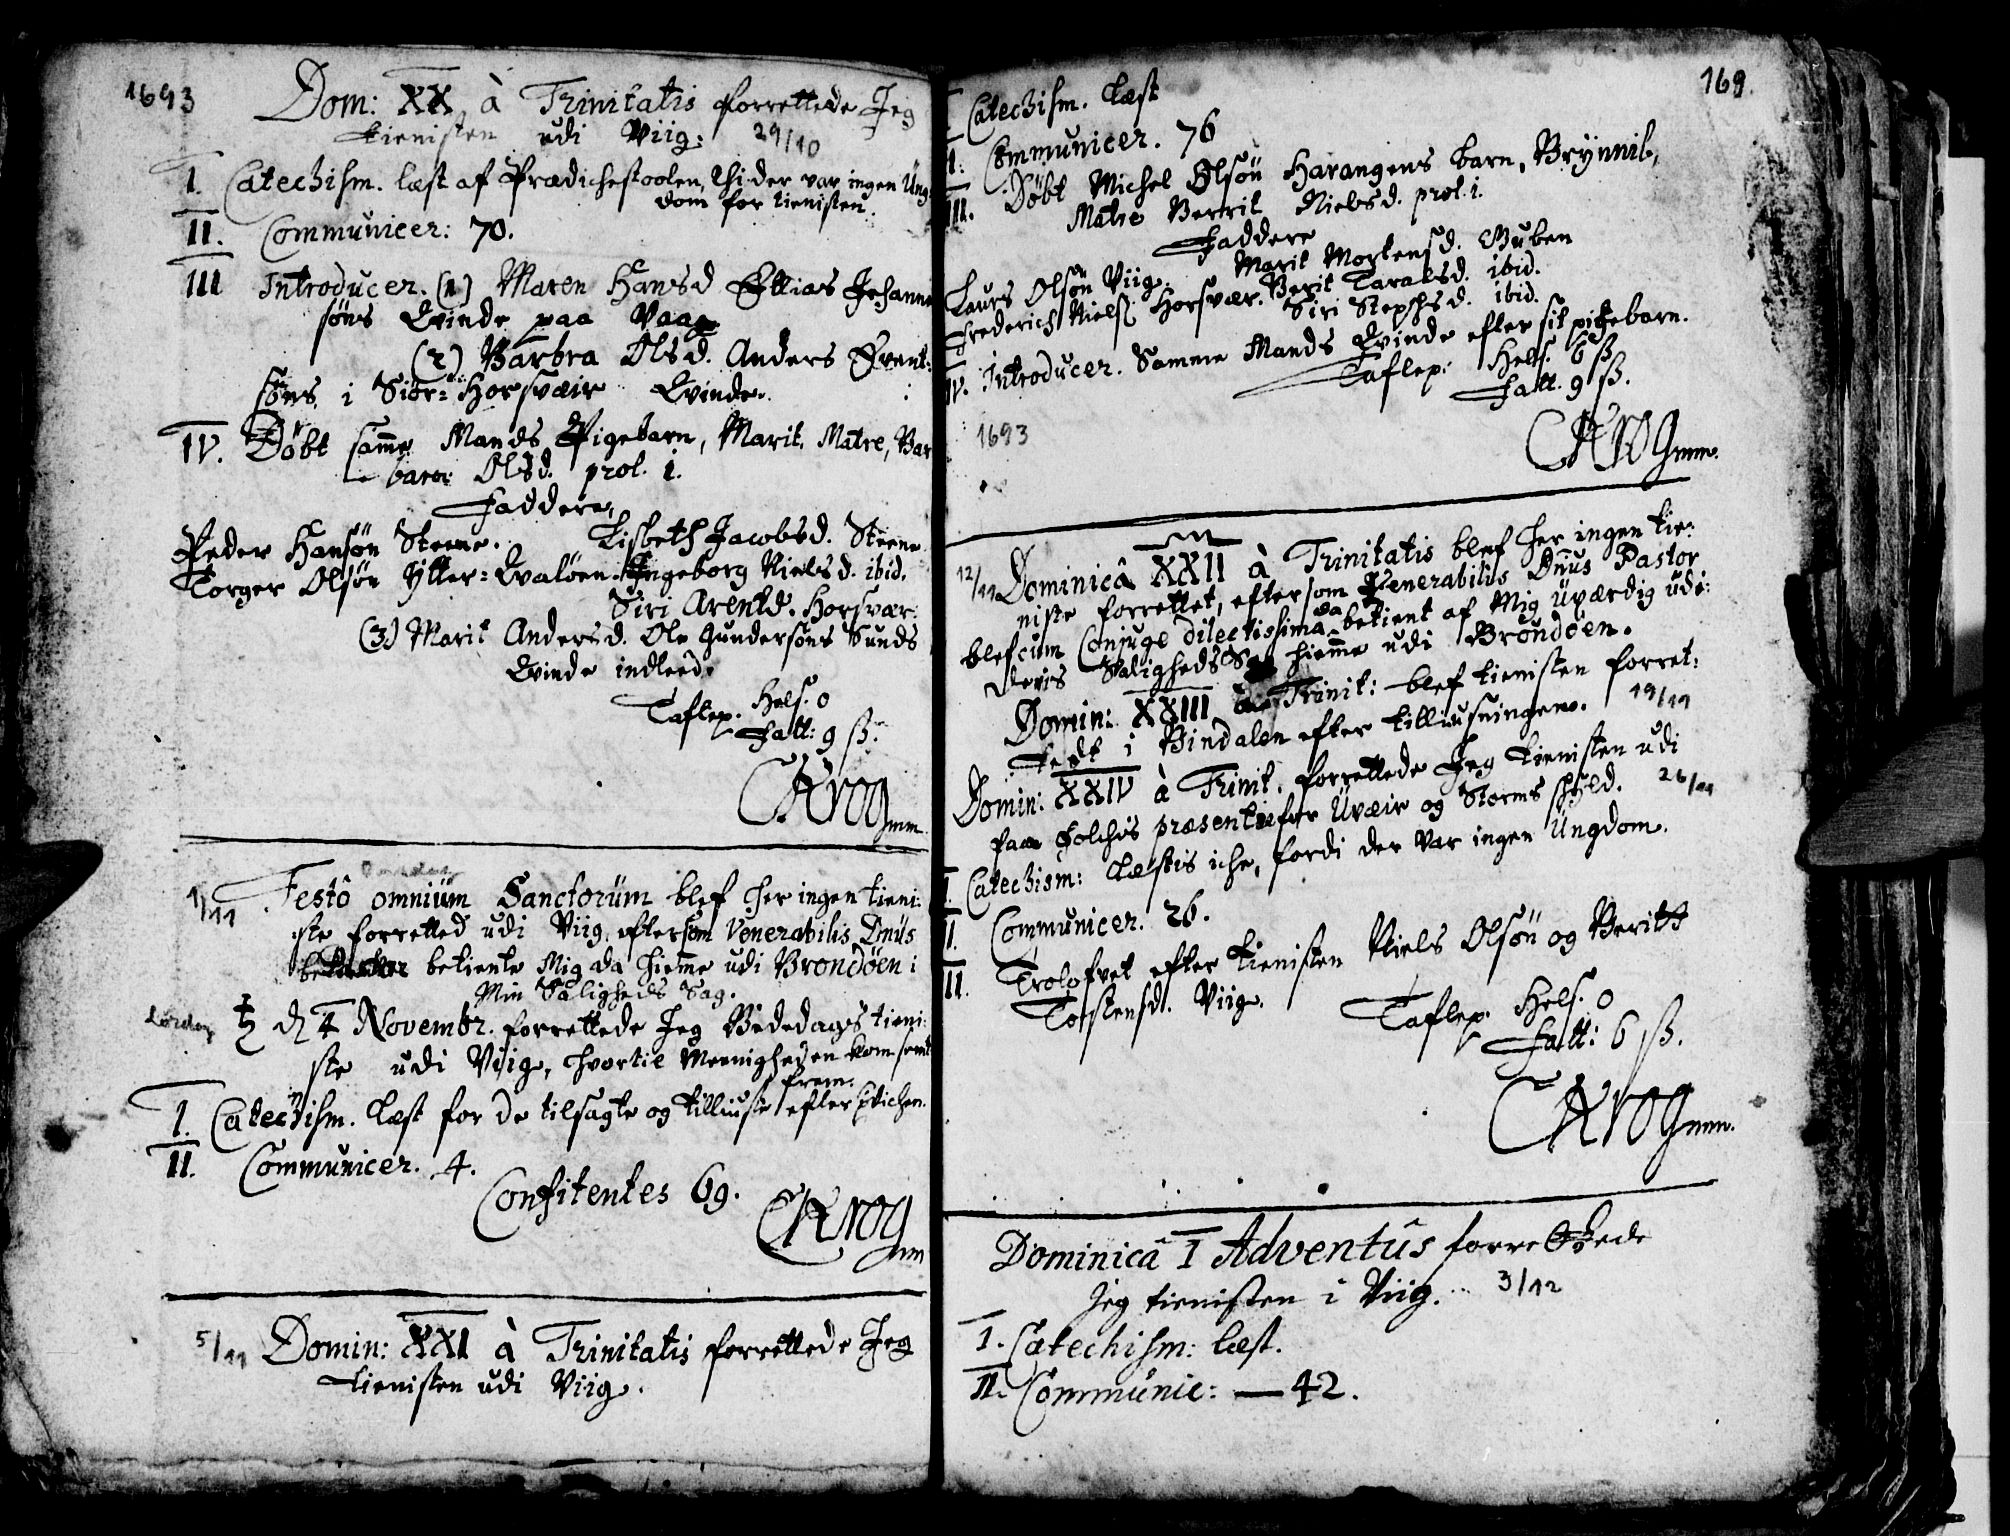 1693
Dom: XX à Trinitatis forrettede Jeg
tienisten udi Viig: 29/10
I. Catechism. læst af Prædichestoolen, thi der var ingen Ung-
dom for tienisten.
II. Communicer: 70.
III Introducer. (1) Maren Hansd Ellias Johann
søns Qvinde paa Vaag
(2) Barbra Olsd. Anders Event-
søns i Siør-Horsvæir Qvinde.
IV. Døbt samme Mands Pigebarn, Marit. Matre, Bar
bara Olsd. prol. 1.
Faddere,
Peder Hansøn Steene. Lisbeth Jacobsd. Steene
Torger Olsøn Ytter-Qvaløen. Ingeborg Nielsd. ibid.
Siri Arentd. Horsvær.
(3) Marit Andersd. Ole Gundersøns Sunds
Qvinde indleed.
Taflep. Hels. 0
Fatt: 9 ß.
CKrog mm
1/11 Festô omnium Sanctorum blef her ingen tieni-
ste forretted udi Viig, eftersom Venerabilis Dnus
betiente Mig da hiemme udi Brondøen i
Min Saligheds Sag.
Lørdag ♄ d 4 Novembr. forrettede Jeg Bededags tieni-
ste udi Viig, hvortil Meenigheden kom sent
frem.
I. Catechism. læst for de tilsagte og tilliuste efter
II. Communicer. 4.
Confitentes 69.
CKrog mm
5/11 Domin: XXI à Trinitatis forrettede Jeg
tienisten udi Viig.
169
I. Catechism. læst
II. Communicer. 76
III. Døbt Michel Olsøn Harangens barn, Brynnil,
Matre Berrit Nielsd. prol. 1.
Faddere
Laurs Olsøn Viig. Marit Mortensd. Buben
Frederich Niels Horsvær. Berit Taralsd. ibid.
Siri Stephsd. ibid.
IV. Introducer. Samme Mands Qvinde efter sit pigebarn.
Taflep: Hels. 6 ß
Fatt. 9 ß.
1693
CKrog mm.
12/11 Dominicâ XXII à Trinitatis blef her ingen tie-
niste forrettet, eftersom Venerabilis Dnus Pastor
blef cum Conjuge dilectissima da betient af Mig uværdig udi
deris Saligheds Sag hiemme udi Brondøen.
Domin: XXIII à Trinit: blef tienisten forret-
tedt i Bindalen efter tilliusningen. 19/11
Domin: XXIV à Trinit. forrettede Jeg tienisten udi
faa Folchis præsentia for Uvæir og Storms skyld. 26/11
I. Catechism: Læstis iche, fordi der var ingen Ungdom.
II. Communicer. 26.
III. Trolofvet efter tienisten Niels Olsøn og Beritt
Torstensd. Viig.
Taflep. Hels. 0
Fatt: 6 ß.
CKrog mm.
Dominicâ I Adventûs forrettede
Jeg tienisten i Viig. 3/12
I. Catechism: læst.
II. Communic: — 42.